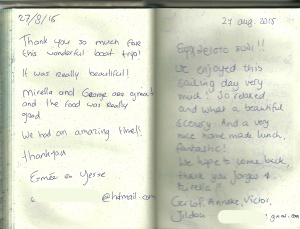 27/8/15
Thank you so much for
this wonderful boat trip!
It was really beautiful!
Mirella and George are great
and the food was really
good
We had an amazing time!
thankyou
Esmée en Jesse
@hotmail.com
27 aug. 2015
Eggzeloto poli!!
We enjoyed this
sailing day very
much! So relaxed
and what a beautiful
scenery. And a very
nice home made lunch,
fantastic!
We hope to come back,
thank you Jorgos &
Mirella!
Gerlof, Anneke, Victor,
Jildou
@gmail.com